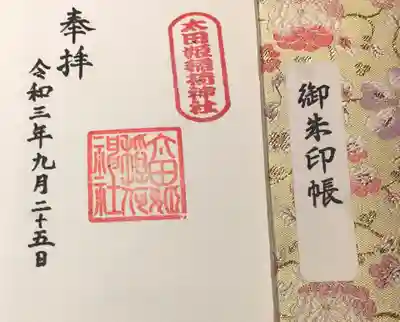 御朱印帳
太田姫稲荷神社
太田姫稲荷神社
奉拝
令和三年九月二十五日